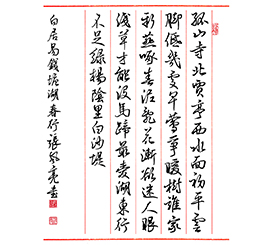 孤山寺北賈亭西水面初平雲
腳低幾處早鶯爭暖樹誰家
新燕啄春泥亂花漸欲迷人眼
淺草才能沒馬蹄最愛湖東行
不足綠楊陰裏白沙堤
白居易錢塘湖春行張亮書